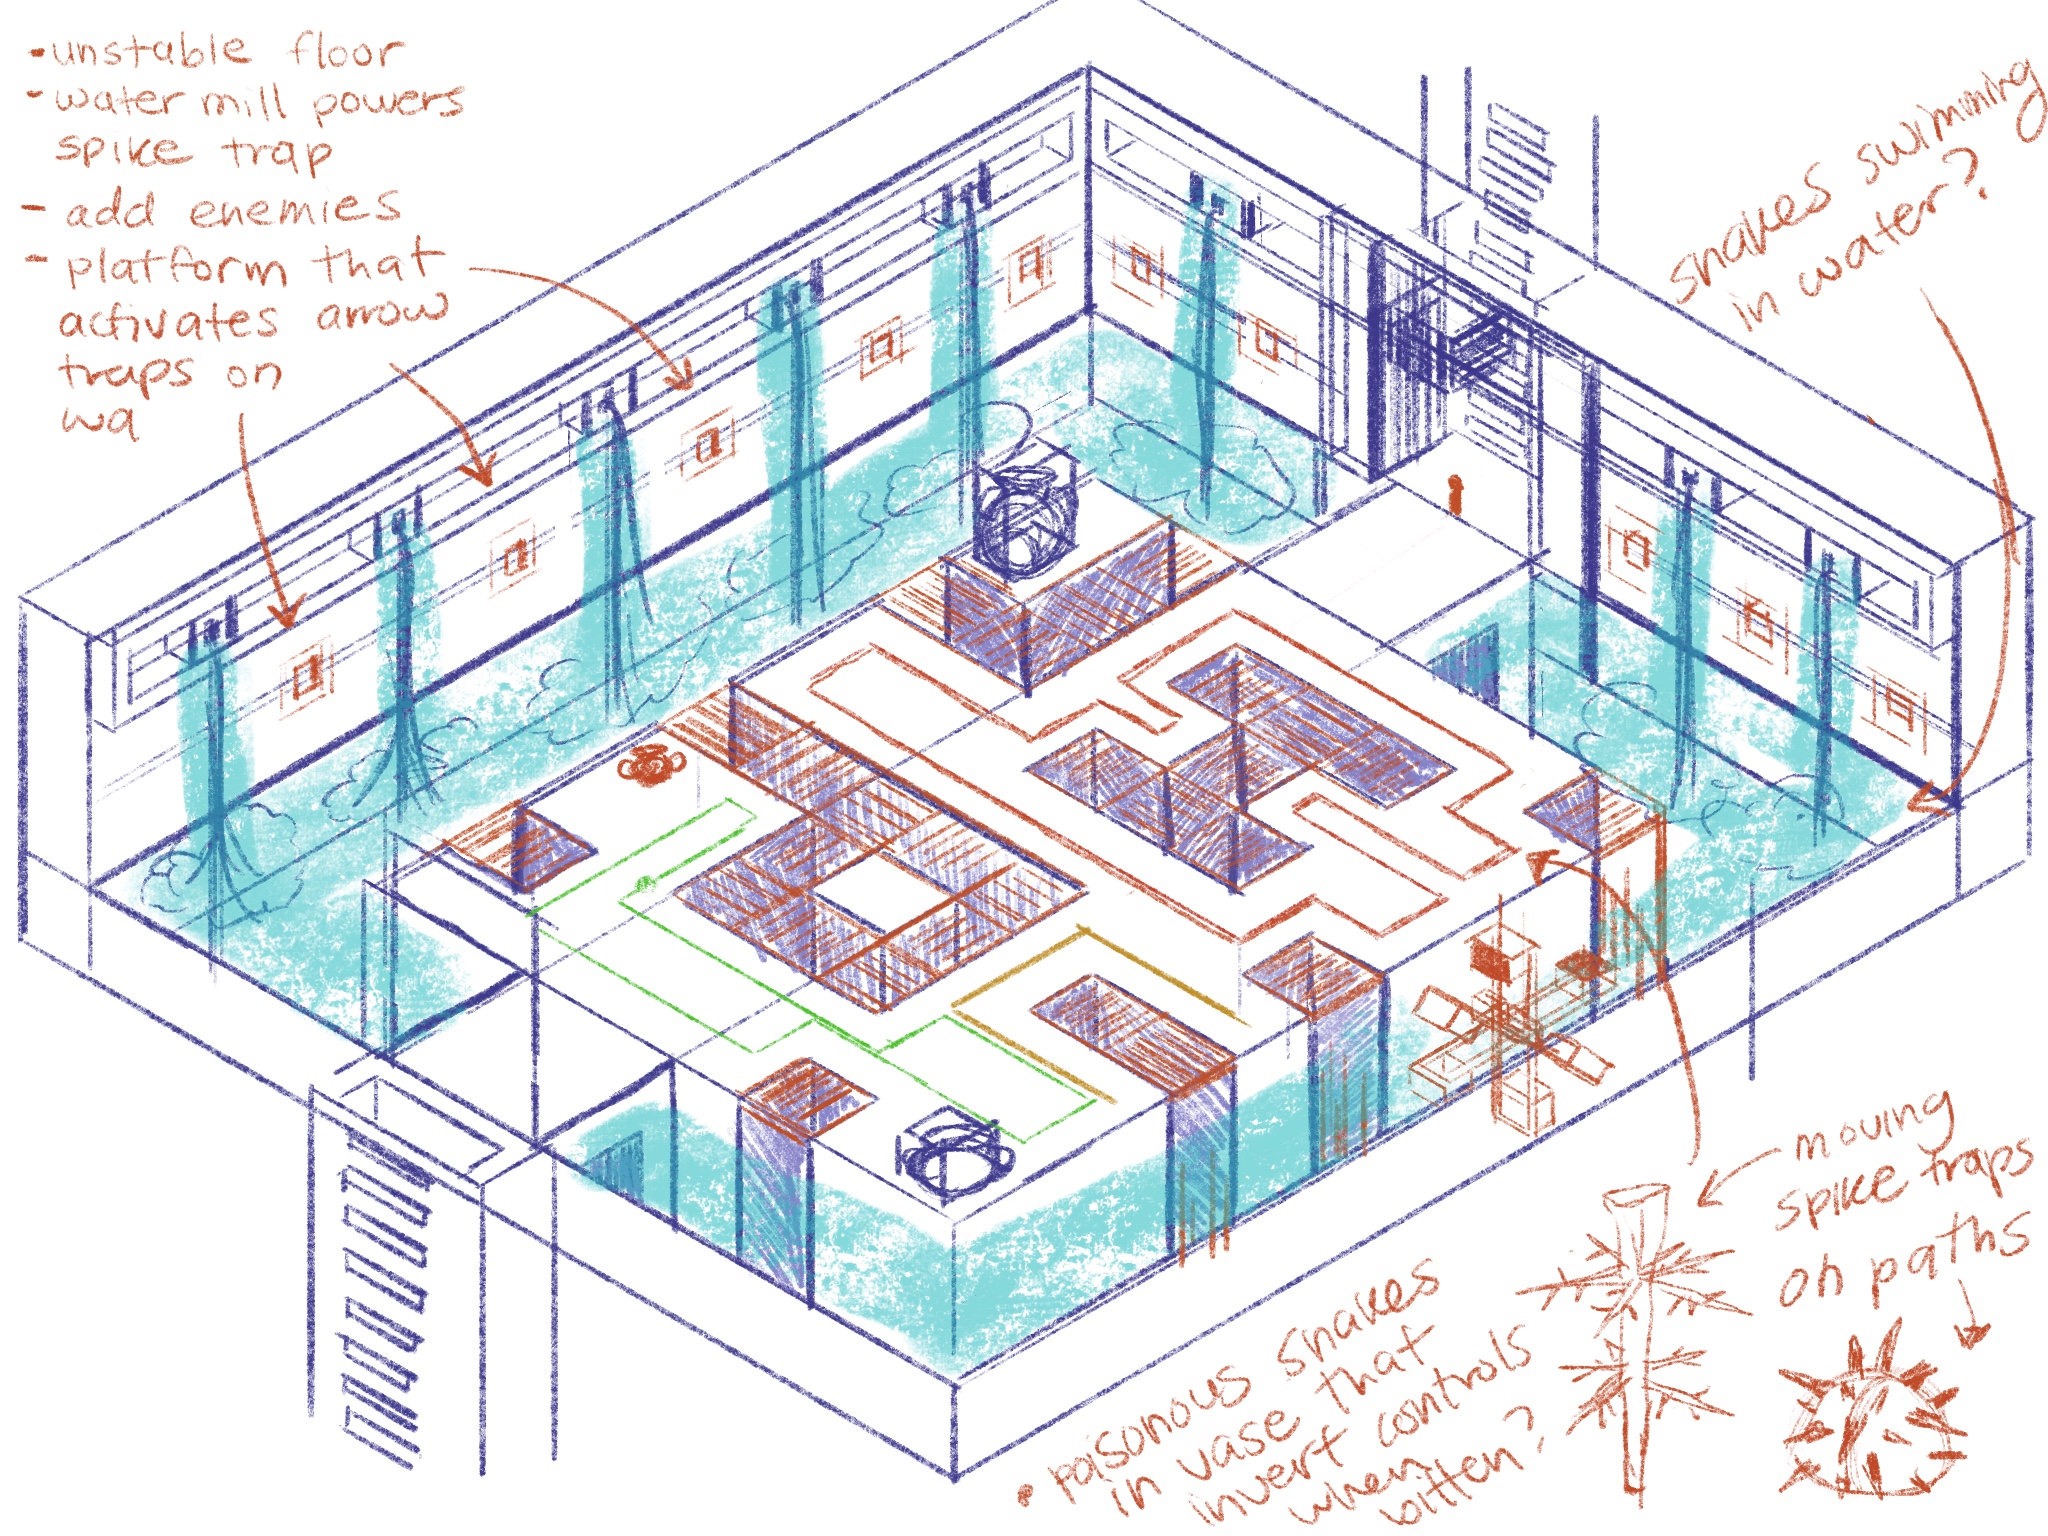 •unstable floor
-water mill powers
spike trap
- add enemies
- platform that
activates arrow
traps on
wa
snakes swimming
in water?
moving
spike traps
on paths
• poisonous snakes
in vase that
invert controls
when
bitten?